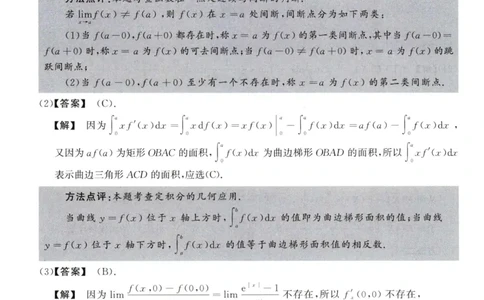 若lim f(x)≠f(a),则 f(x)在 x=a 处间断,间断点分为如下两类:
x→a
(1)当 f(a-0),f(a+0)都存在时,称 x=a 为 f(x)的第一类间断点,其中当 f(a-0)=
f(a+0)时,称 x=a 为 f(x)的可去间断点;当 f(a-0)≠f(a+0)时,x=a 为 f(x)的跳
跃间断点;
(2)当 f(a-0),f(a+0)至少有一个不存在时,称 x=a 为 f(x)的第二类间断点.
(2)【答案】 (C).
【解】 因为∫₀ᵃ xf′(x)dx=∫₀ᵃ xdf(x)=xf(x)|₀ᵃ-∫₀ᵃ f(x)dx=af(a)-∫₀ᵃ f(x)dx,
又因为 af(a)为矩形 OBAC 的面积,∫₀ᵃ f(x)dx 为曲边梯形 OBAD 的面积,所以∫₀ᵃ xf′(x)dx
表示曲边三角形 ACD 的面积,应选(C).
方法点评:本题考查定积分的几何应用.
当曲线 y=f(x)位于 x 轴上方时,∫ₐᵇ f(x)dx 的值即为曲边梯形面积的值;当曲线
y=f(x)位于 x 轴下方时,∫ₐᵇ f(x)dx 的值等于曲边梯形面积值的相反数.
(3)【答案】 (B).
【解】 因为 lim f(x,0)-f(0,0) = lim e^|x|-1 不存在,所以 f′ₓ(0,0)不存在,